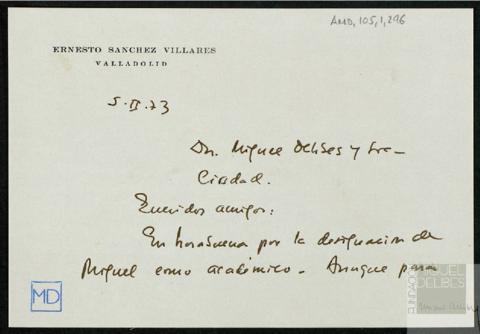 AMD, 105, 1, 296
ERNESTO SANCHEZ VILLARES
VALLADOLID
5-II-73
Dn. Miguel Delibes y Sra-
Ciudad.
Queridos amigos:
En horabuena por la designación de
Miguel como académico. Aunque para
MD
FUNDACIÓN
MIGUEL
DELIBES